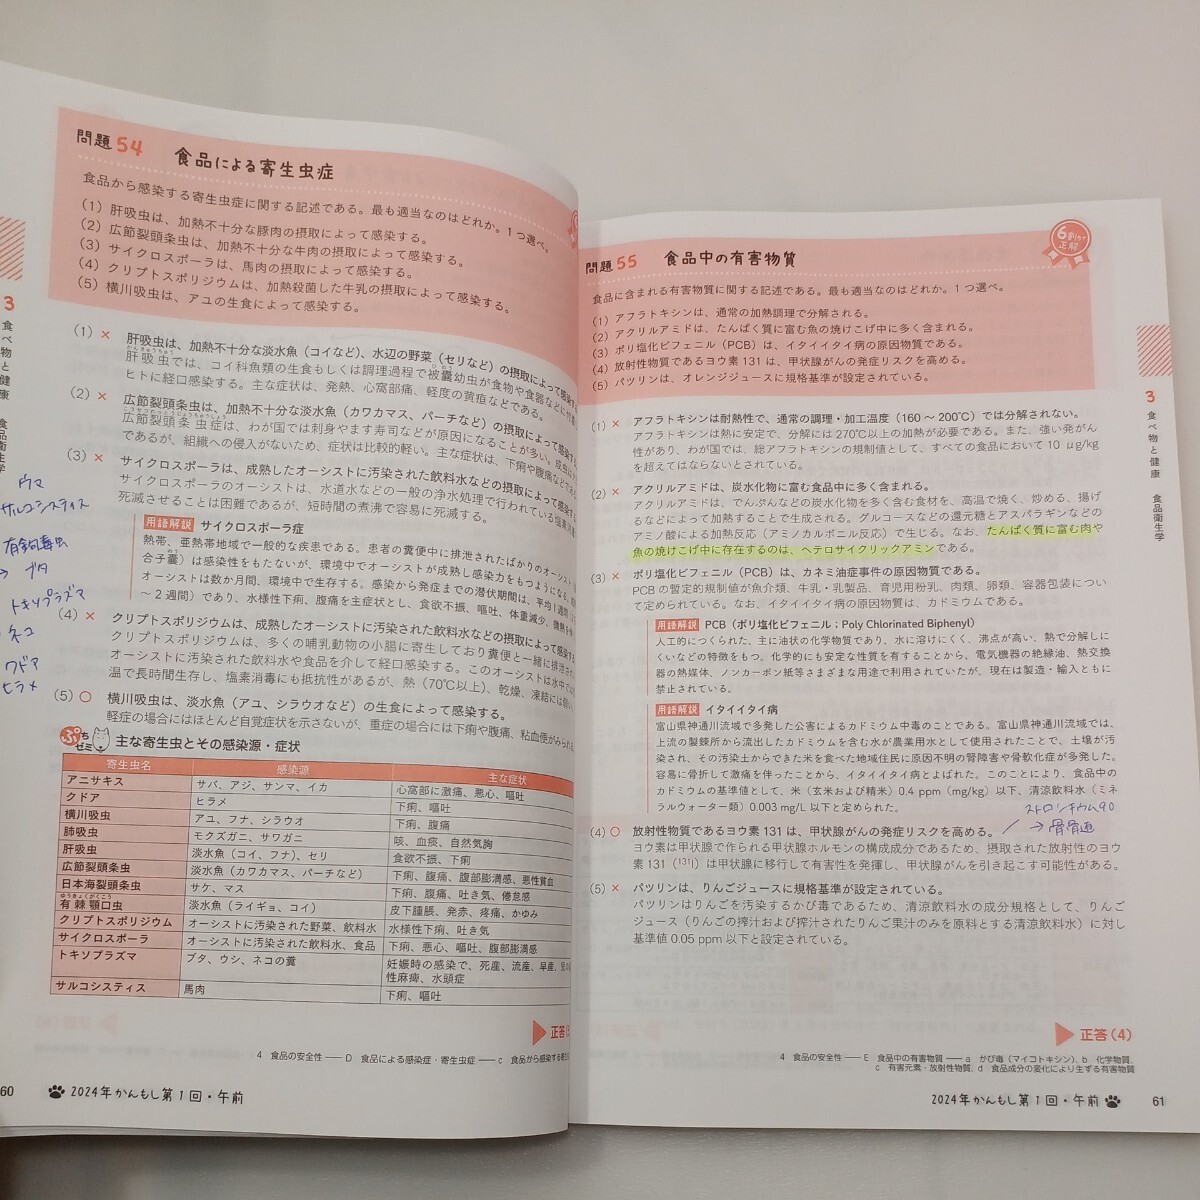 問題54 食品による寄生虫症
食品から感染する寄生虫症に関する記述である。最も適当なのはどれか。1つ選べ。
(1) 肝吸虫は、加熱不十分な豚肉の摂取によって感染する。
(2) 広節裂頭条虫は、加熱不十分な牛肉の摂取によって感染する。
(3) サイクロスポーラは、馬肉の摂取によって感染する。
(4) クリプトスポリジウムは、加熱殺菌した牛乳の摂取によって感染する。
(5) 横川吸虫は、アユの生食によって感染する。
(1) × 肝吸虫は、加熱不十分な淡水魚（コイなど）、水辺の野菜（セリなど）の摂取によって感染する
肝吸虫では、コイ科魚類の生食もしくは調理過程で被嚢幼虫が食物や食器などに付着
ヒトに経口感染する。主な症状は、発熱、心窩部痛、軽度の黄疸などである。
(2) × 広節裂頭条虫は、加熱不十分な淡水魚（カワカマス、パーチなど）の摂取によって感染する
広節裂頭条虫症は、わが国では刺身やます寿司などが原因になることが多い。成虫は
であるが、組織への侵入がないため、症状は比較的軽い。主な症状は、下痢や腹痛などである。
(3) × サイクロスポーラは、成熟したオーシストに汚染された飲料水などの摂取によって感染する
サイクロスポーラのオーシストは、水道水などの一般の浄水処理で行われている塩素消毒
死滅させることは困難であるが、短時間の煮沸で容易に死滅する。
用語解説 サイクロスポーラ症
熱帯、亜熱帯地域で一般的な疾患である。患者の糞便中に排泄されたばかりのオーシスト
合子嚢）は感染性をもたないが、環境中でオーシストが成熟し感染力をもつようになる。
オーシストは数か月間、環境中で生存する。感染から発症までの潜伏期間は、平均1週間
～2週間）であり、水様性下痢、腹痛を主症状とし、食欲不振、嘔吐、体重減少、微熱を
(4) × クリプトスポリジウムは、成熟したオーシストに汚染された飲料水などの摂取によって感染する
クリプトスポリジウムは、多くの哺乳動物の小腸に寄生しており糞便と一緒に排泄された
オーシストに汚染された飲料水や食品を介して経口感染する。このオーシストは水中では
温で長時間生存し、塩素消毒にも抵抗性があるが、熱（70℃以上）、乾燥、凍結には弱い
(5) ○ 横川吸虫は、淡水魚（アユ、シラウオなど）の生食によって感染する。
軽症の場合にはほとんど自覚症状を示さないが、重症の場合には下痢や腹痛、粘血便がみられる
ぷちゼミ 主な寄生虫とその感染源・症状
寄生虫名 感染源 主な症状
アニサキス サバ、アジ、サンマ、イカ 心窩部に激痛、悪心、嘔吐
クドア ヒラメ 下痢、嘔吐
横川吸虫 アユ、フナ、シラウオ 下痢、腹痛
肺吸虫 モクズガニ、サワガニ 咳、血痰、自然気胸
肝吸虫 淡水魚（コイ、フナ）、セリ 食欲不振、下痢
広節裂頭条虫 淡水魚（カワカマス、パーチなど） 下痢、腹痛、腹部膨満感、悪性貧血
日本海裂頭条虫 サケ、マス 下痢、腹痛、吐き気、倦怠感
有棘顎口虫 淡水魚（ライギョ、コイ） 皮下腫脹、発赤、疼痛、かゆみ
クリプトスポリジウム オーシストに汚染された野菜、飲料水 水様性下痢、吐き気
サイクロスポーラ オーシストに汚染された飲料水、食品 下痢、悪心、嘔吐、腹部膨満感
トキソプラズマ ブタ、ウシ、ネコの糞 妊娠時の感染で、死産、流産、早産、
性麻痺、水頭症
サルコシスティス 馬肉 下痢、嘔吐
正答
4 食品の安全性 ―― D 食品による感染症・寄生虫症 ―― c 食品から感染する寄生
60 2024年かんもし第1回・午前
3
食べ物と健康 食品衛生学
ウマ
サルコシスティス
有鉤嚢虫
→ ブタ
トキソプラズマ
ネコ
クドア
ヒラメ
6割が正解
問題55 食品中の有害物質
食品に含まれる有害物質に関する記述である。最も適当なのはどれか。1つ選べ。
(1) アフラトキシンは、通常の加熱調理で分解される。
(2) アクリルアミドは、たんぱく質に富む魚の焼けこげ中に多く含まれる。
(3) ポリ塩化ビフェニル（PCB）は、イタイイタイ病の原因物質である。
(4) 放射性物質であるヨウ素131は、甲状腺がんの発症リスクを高める。
(5) パツリンは、オレンジジュースに規格基準が設定されている。
(1) × アフラトキシンは耐熱性で、通常の調理・加工温度（160～200℃）では分解されない。
アフラトキシンは熱に安定で、分解には270℃以上の加熱が必要である。また、強い発がん
性があり、わが国では、総アフラトキシンの規制値として、すべての食品において10 μg/kg
を超えてはならないとされている。
(2) × アクリルアミドは、炭水化物に富む食品中に多く含まれる。
アクリルアミドは、でんぷんなどの炭水化物を多く含む食材を、高温で焼く、炒める、揚げ
るなどによって加熱することで生成される。グルコースなどの還元糖とアスパラギンなどの
アミノ酸による加熱反応（アミノカルボニル反応）で生じる。なお、たんぱく質に富む肉や
魚の焼けこげ中に存在するのは、ヘテロサイクリックアミンである。
(3) × ポリ塩化ビフェニル（PCB）は、カネミ油症事件の原因物質である。
PCBの暫定的規制値が魚介類、牛乳・乳製品、育児用粉乳、肉類、卵類、容器包装につい
て定められている。なお、イタイイタイ病の原因物質は、カドミウムである。
用語解説 PCB（ポリ塩化ビフェニル；Poly Chlorinated Biphenyl）
人工的につくられた、主に油状の化学物質であり、水に溶けにくく、沸点が高い、熱で分解しに
くいなどの特徴をもつ。化学的にも安定な性質を有することから、電気機器の絶縁油、熱交換
器の熱媒体、ノンカーボン紙等さまざまな用途で利用されていたが、現在は製造・輸入ともに
禁止されている。
用語解説 イタイイタイ病
富山県神通川流域で多発した公害によるカドミウム中毒のことである。富山県神通川流域では、
上流の製錬所から流出したカドミウムを含む水が農業用水として使用されたことで、土壌が汚
染され、その汚染土からできた米を食べた地域住民に原因不明の腎障害や骨軟化症が多発した。
容易に骨折して激痛を伴ったことから、イタイイタイ病とよばれた。このことにより、食品中の
カドミウムの基準値として、米（玄米および精米）0.4 ppm（mg/kg）以下、清涼飲料水（ミネ
ラルウォーター類）0.003 mg/L以下と定められた。
ストロンチウム90
(4) ○ 放射性物質であるヨウ素131は、甲状腺がんの発症リスクを高める。
ヨウ素は甲状腺で作られる甲状腺ホルモンの構成成分であるため、摂取された放射性のヨウ
素131（¹³¹I）は甲状腺に移行して有害性を発揮し、甲状腺がんを引き起こす可能性がある。
(5) × パツリンは、りんごジュースに規格基準が設定されている。
パツリンはりんごを汚染するかび毒であるため、清涼飲料水の成分規格として、りんご
ジュース（りんごの搾汁および搾汁されたりんご果汁のみを原料とする清涼飲料水）に対し
基準値0.05 ppm以下と設定されている。
正答（4）
4 食品の安全性 ―― E 食品中の有害物質 ―― a かび毒（マイコトキシン）、b 化学物質、
c 有害元素・放射性物質、d 食品成分の変化により生ずる有害物質
2024年かんもし第1回・午前 61
3
食べ物と健康 食品衛生学